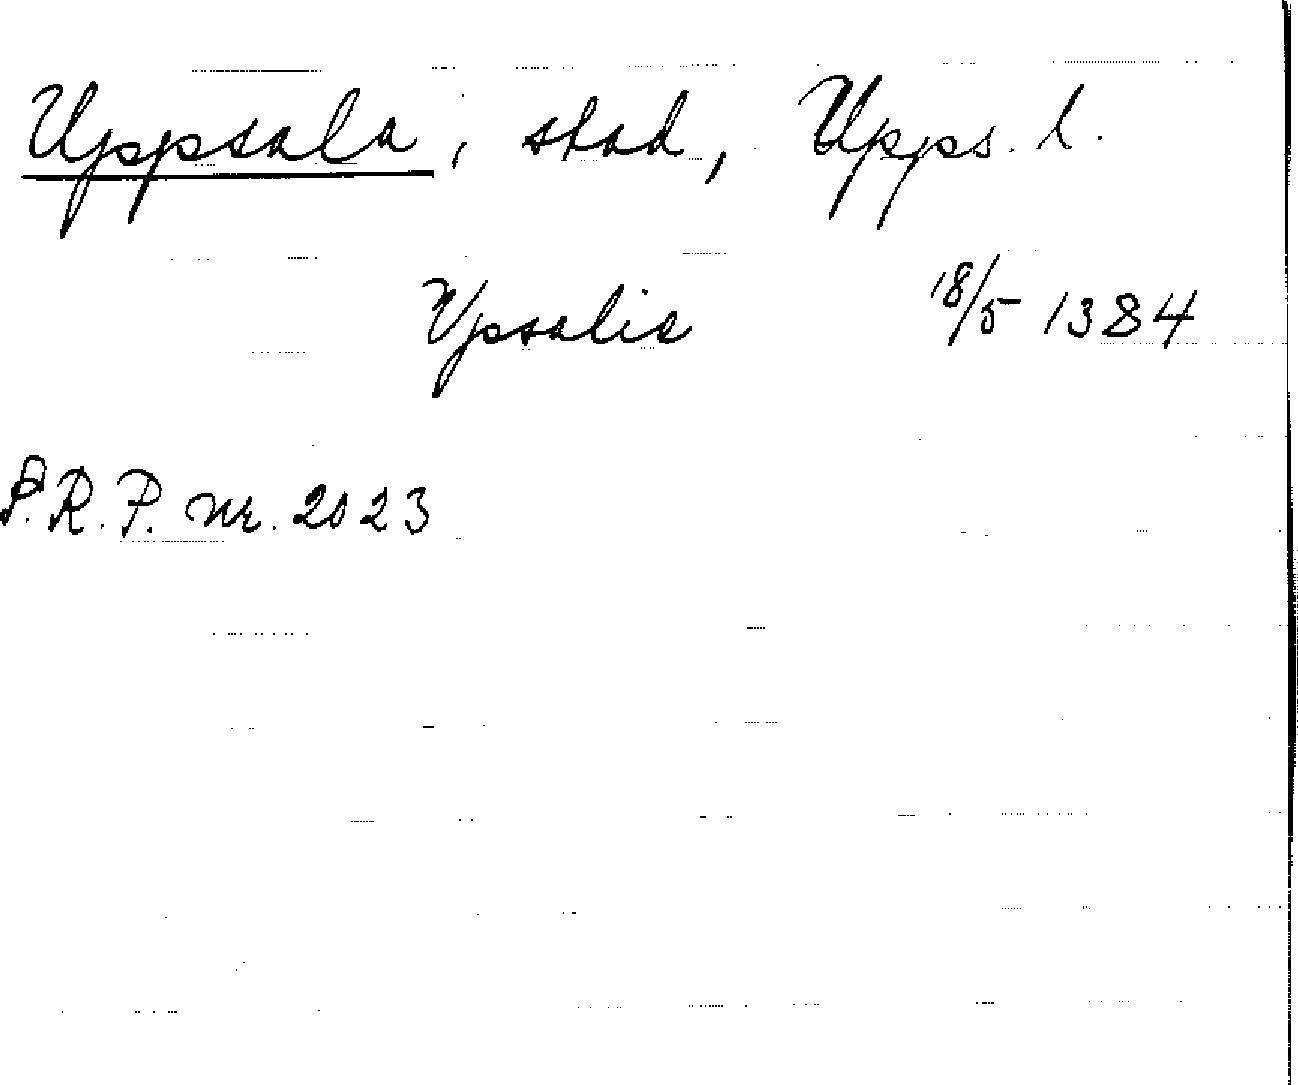 Uppsala, stad, Upps. l.
Vpsalie 18/5 1384
P.R.P. nr. 2023